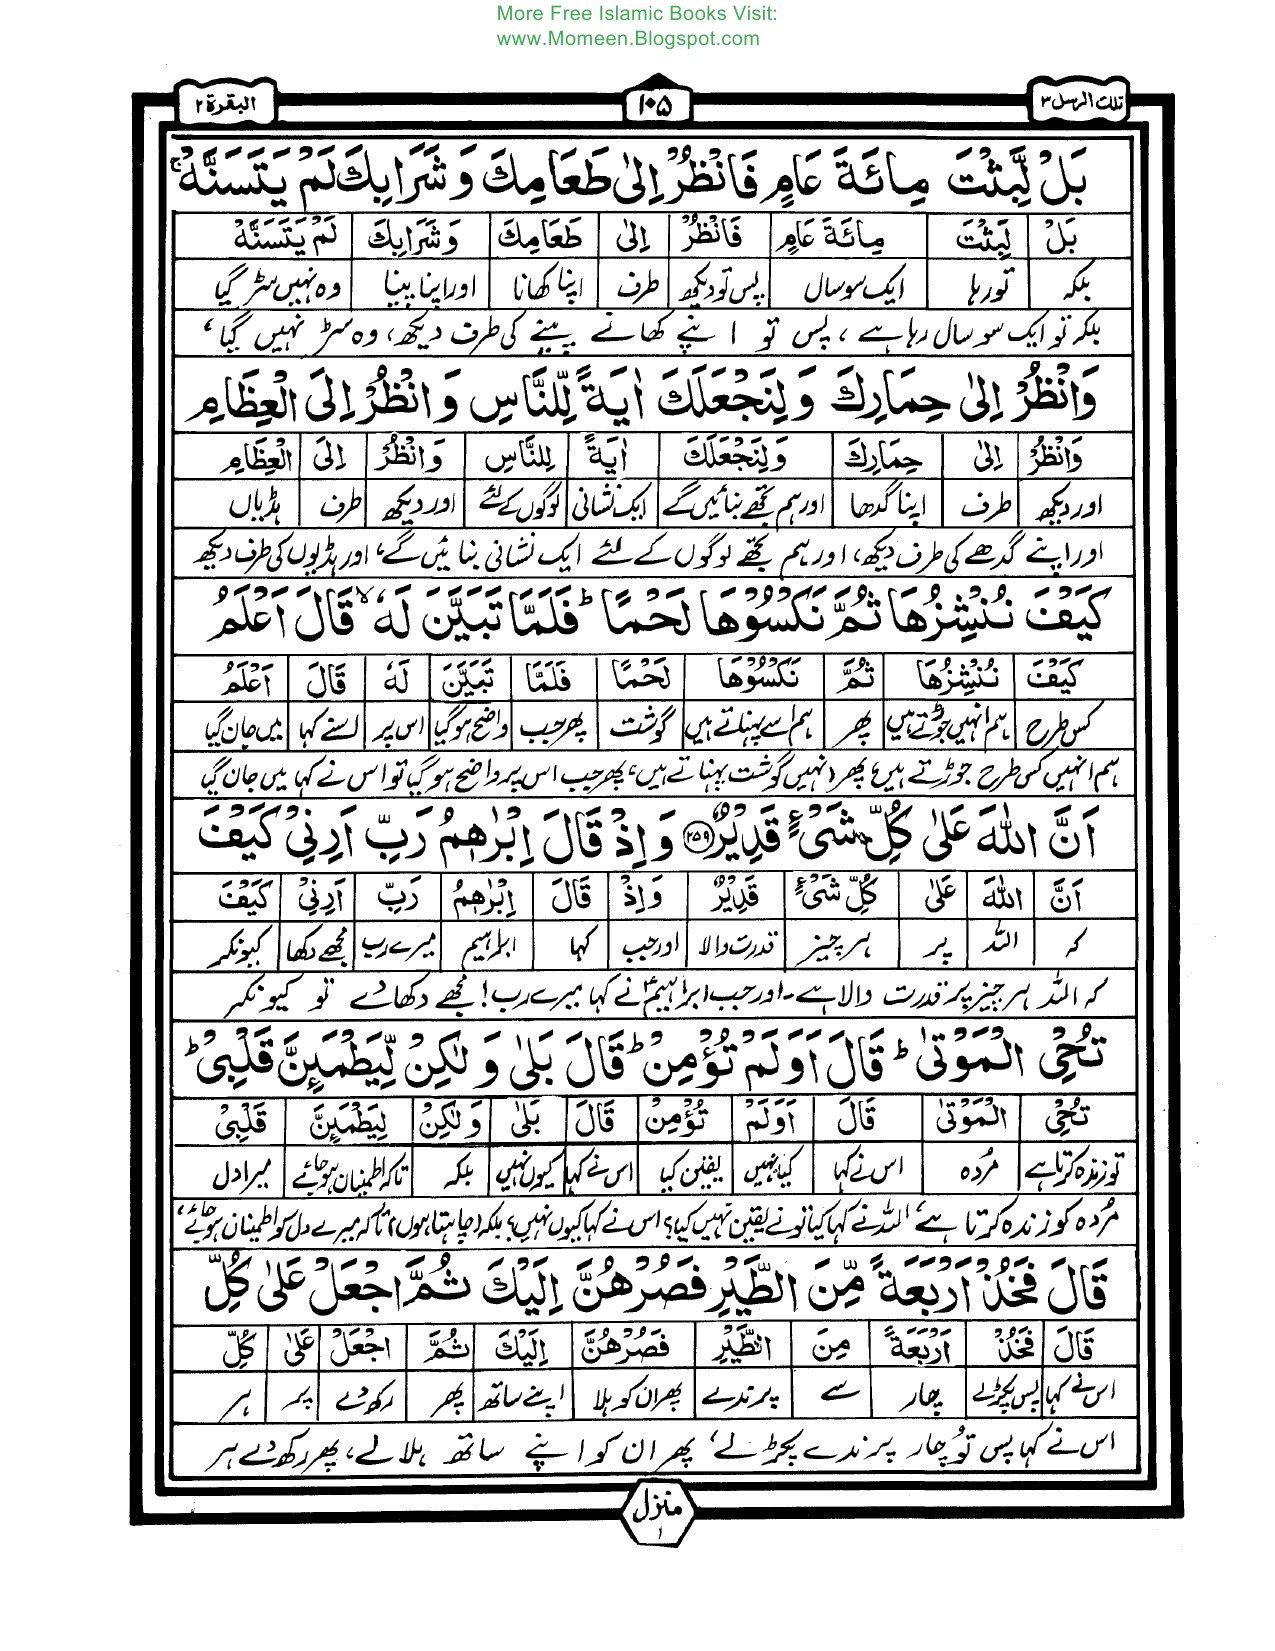 More Free Islamic Books Visit:
www.Momeen.Blogspot.com
تلك الرسل ٣
١٠٥
البقرة ٢
بَلْ لَّبِثْتَ مِائَةَ عَامٍ فَانْظُرْ اِلٰى طَعَامِكَ وَشَرَابِكَ لَمْ يَتَسَنَّهْ ۚ
بَلْ لَبِثْتَ مِائَةَ عَامٍ فَانْظُرْ اِلٰى طَعَامِكَ وَشَرَابِكَ لَمْ يَتَسَنَّهْ
بلکہ تو رہا ایک سو سال پس تو دیکھ طرف اپنا کھانا اور اپنا پینا وہ نہیں سڑ گیا
بلکہ تو ایک سو سال رہا ہے، پس تو اپنے کھانے پینے کی طرف دیکھ، وہ سڑ نہیں گیا،
وَانْظُرْ اِلٰى حِمَارِكَ وَلِنَجْعَلَكَ اٰيَةً لِّلنَّاسِ وَانْظُرْ اِلَى الْعِظَامِ
وَانْظُرْ اِلٰى حِمَارِكَ وَلِنَجْعَلَكَ اٰيَةً لِلنَّاسِ وَانْظُرْ اِلَى الْعِظَامِ
اور دیکھ طرف اپنا گدھا اور ہم تجھے بنائیں گے ایک نشانی لوگوں کے لئے اور دیکھ طرف ہڈیاں
اور اپنے گدھے کی طرف دیکھ، اور ہم تجھے لوگوں کے لئے ایک نشانی بنائیں گے، اور ہڈیوں کی طرف دیکھ
كَيْفَ نُنْشِزُهَا ثُمَّ نَكْسُوْهَا لَحْمًا ؕ فَلَمَّا تَبَيَّنَ لَهٗ ۙ قَالَ اَعْلَمُ
كَيْفَ نُنْشِزُهَا ثُمَّ نَكْسُوْهَا لَحْمًا فَلَمَّا تَبَيَّنَ لَهٗ قَالَ اَعْلَمُ
کس طرح ہم انہیں جوڑتے ہیں پھر ہم اسے پہناتے ہیں گوشت پھر جب واضح ہو گیا اس پر اسنے کہا میں جان گیا
ہم انہیں کس طرح جوڑتے ہیں، پھر انہیں گوشت پہناتے ہیں، پھر جب اس پر واضح ہو گیا تو اس نے کہا میں جان گیا
اَنَّ اللّٰهَ عَلٰى كُلِّ شَىْءٍ قَدِيْرٌ ۝٢٥٩ وَاِذْ قَالَ اِبْرٰهٖمُ رَبِّ اَرِنِىْ كَيْفَ
اَنَّ اللّٰهَ عَلٰى كُلِّ شَىْءٍ قَدِيْرٌ وَاِذْ قَالَ اِبْرٰهٖمُ رَبِّ اَرِنِىْ كَيْفَ
کہ اللہ پر ہر چیز قدرت والا اور جب کہا ابراہیم میرے رب مجھے دکھا کیونکر
کہ اللہ ہر چیز پر قدرت والا ہے۔ اور جب ابراہیمؑ نے کہا میرے رب! مجھے دکھا دے تو کیونکر
تُحْىِ الْمَوْتٰى ؕ قَالَ اَوَلَمْ تُؤْمِنْ ؕ قَالَ بَلٰى وَلٰكِنْ لِّيَطْمَئِنَّ قَلْبِىْ ؕ
تُحْىِ الْمَوْتٰى قَالَ اَوَلَمْ تُؤْمِنْ قَالَ بَلٰى وَلٰكِنْ لِيَطْمَئِنَّ قَلْبِىْ
تو زندہ کرتا ہے مُردہ اس نے کہا کیا نہیں یقین کیا اس نے کہا کیوں نہیں بلکہ تاکہ اطمینان ہو جائے میرا دل
مُردہ کو زندہ کرتا ہے، اللہ نے کہا کیا تو نے یقین نہیں کیا؟ اس نے کہا کیوں نہیں؟ بلکہ (چاہتا ہوں) تاکہ میرے دل کو اطمینان ہو جائے،
قَالَ فَخُذْ اَرْبَعَةً مِّنَ الطَّيْرِ فَصُرْهُنَّ اِلَيْكَ ثُمَّ اجْعَلْ عَلٰى كُلِّ
قَالَ فَخُذْ اَرْبَعَةً مِنَ الطَّيْرِ فَصُرْهُنَّ اِلَيْكَ ثُمَّ اجْعَلْ عَلٰى كُلِّ
اس نے کہا پس پکڑ لے چار سے پرندے پھر ان کو ہلا اپنے ساتھ پھر رکھ دے پر ہر
اس نے کہا پس تُو چار پرندے پکڑ لے، پھر ان کو اپنے ساتھ ہلا لے، پھر رکھ دے ہر
منزل
١